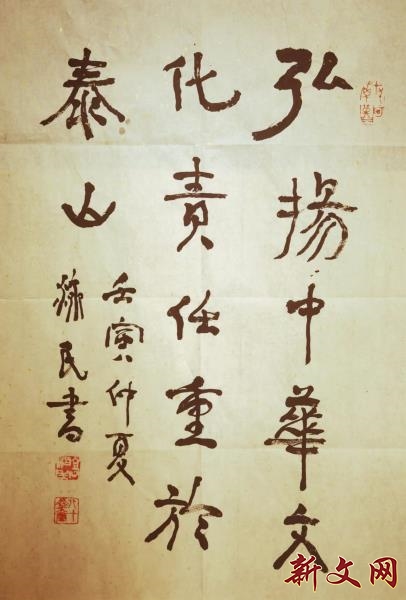 弘揚中華文
化責任重於
泰山
壬寅仲夏
民書
新文网